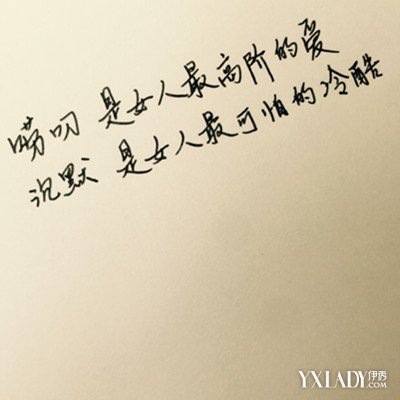 唠叨 是女人最高阶的爱
沉默 是女人最可怕的冷酷
YXLADY.com 伊秀